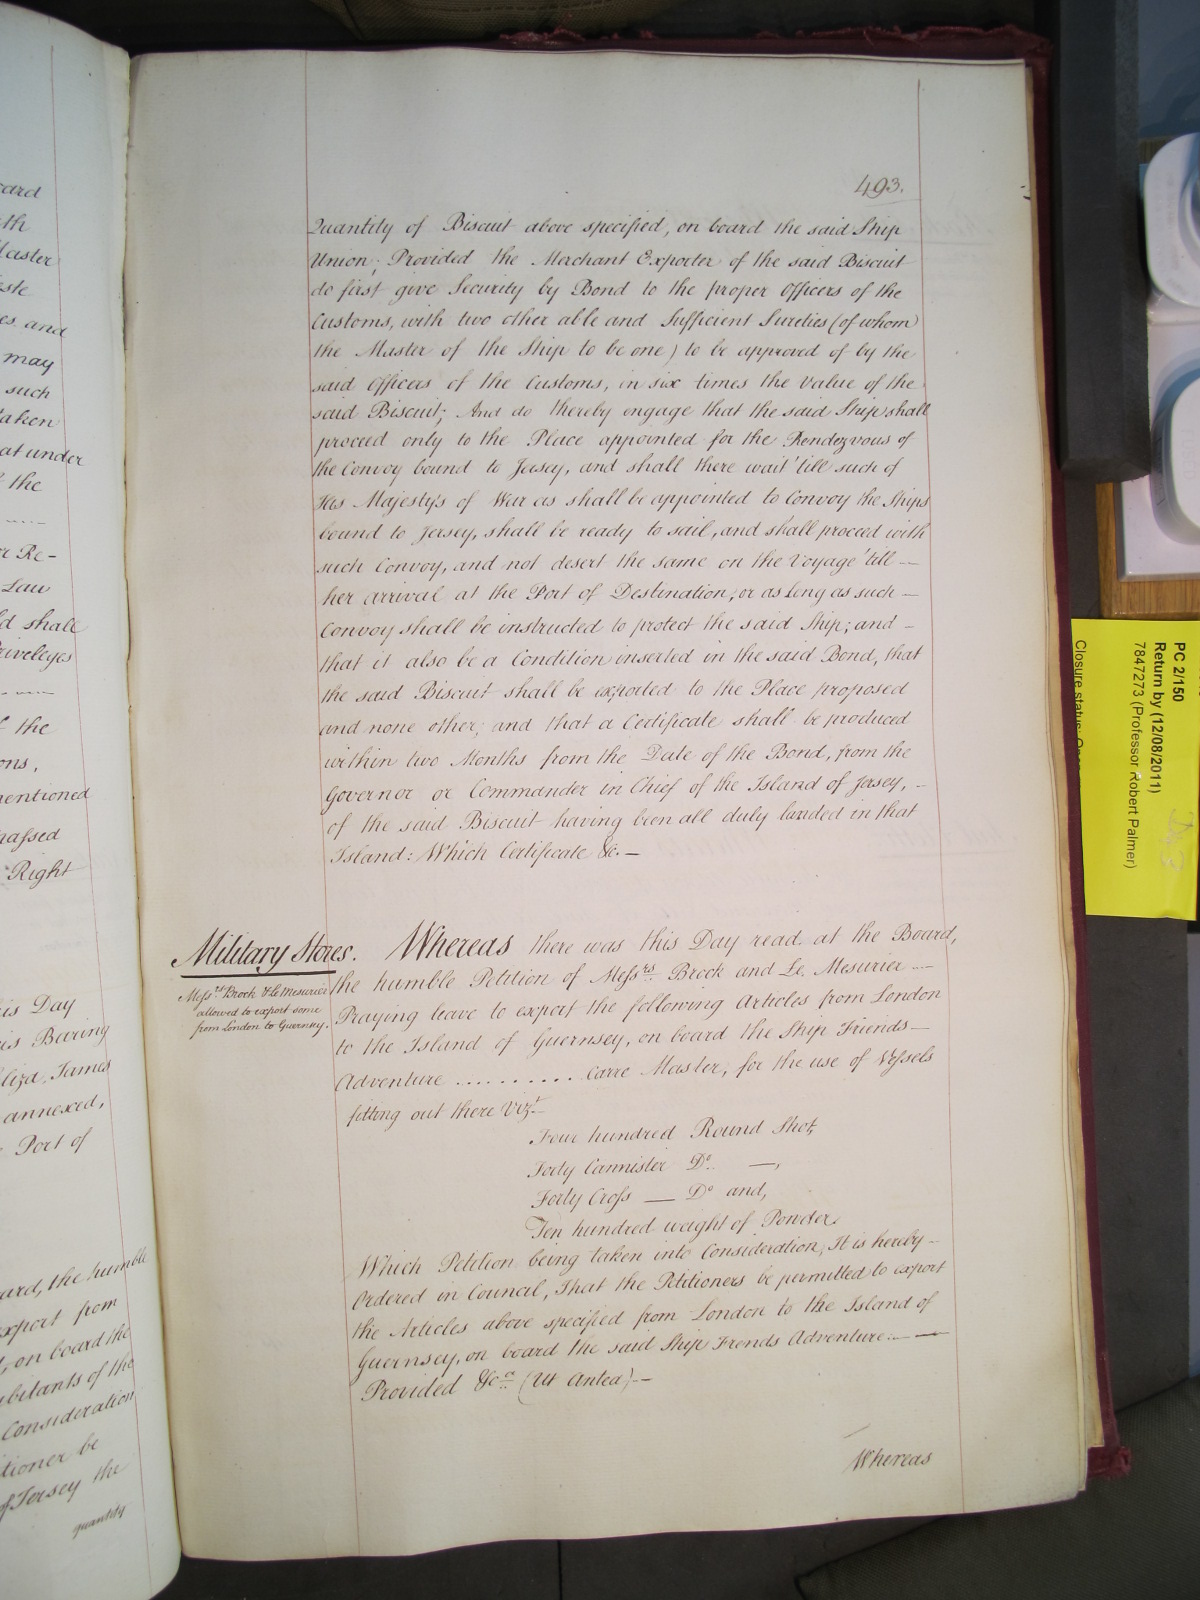 493.
Quantity of Biscuit above specified, on board the said Ship
Union; Provided the Merchant Exporter of the said Biscuit
do first give Security by Bond to the proper Officers of the
Customs, with two other able and Sufficient Sureties (of whom
the Master of the Ship to be one) to be approved of by the
said Officers of the Customs, in six times the Value of the
said Biscuit; And do thereby engage that the said Ship shall
proceed only to the Place appointed for the Rendezvous of
the Convoy bound to Jersey, and shall there wait 'till such of
His Majesty's of War as shall be appointed to Convoy the Ships
bound to Jersey, shall be ready to sail, and shall proceed with
such Convoy, and not desert the same on the Voyage 'till --
her arrival at the Port of Destination, or as long as such —
Convoy shall be instructed to protect the said Ship; and -
that it also be a Condition inserted in the said Bond, that
the said Biscuit shall be exported to the Place proposed
and none other; and that a Certificate shall be produced
within two Months from the Date of the Bond, from the
Governor or Commander in Chief of the Island of Jersey, -
of the said Biscuit having been all duly landed in that
Island: Which Certificate &c. —
Military Stores.
Messrs. Brock & Le Mesurier
allowed to export some
from London to Guernsey.
Whereas there was this Day read at the Board,
the humble Petition of Messrs. Brock and Le Mesurier ---
Praying leave to export the following Articles from London
to the Island of Guernsey, on board the Ship Friends —
Adventure .......... Carre Master, for the use of Vessels
fitting out there Vizt.
Four hundred Round Shot,
Forty Cannister Do. —,
Forty Cross — Do and,
Ten hundred weight of Powder.
Which Petition being taken into Consideration, It is hereby -
Ordered in Council, That the Petitioners be permitted to export
the Articles above specified from London to the Island of
Guernsey, on board the said Ship Frends Adventure: — —
Provided &ca. (Ut Antea) —
Whereas
ard
th
Master
es and
may
such
taken
at under
the
---
or Re-
Law
shall
Priveleges
---
the
ons,
mentioned
passed
Right
is Day
is Baring
Eliza, James
annexed,
Port of
ard, the humble
export from
on board the
abitants of the
Consideration
tioner be
of Jersey the
quantity
PC 2/150
Return by (12/08/2011)
7847273 (Professor Robert Palmer)
Closure status: